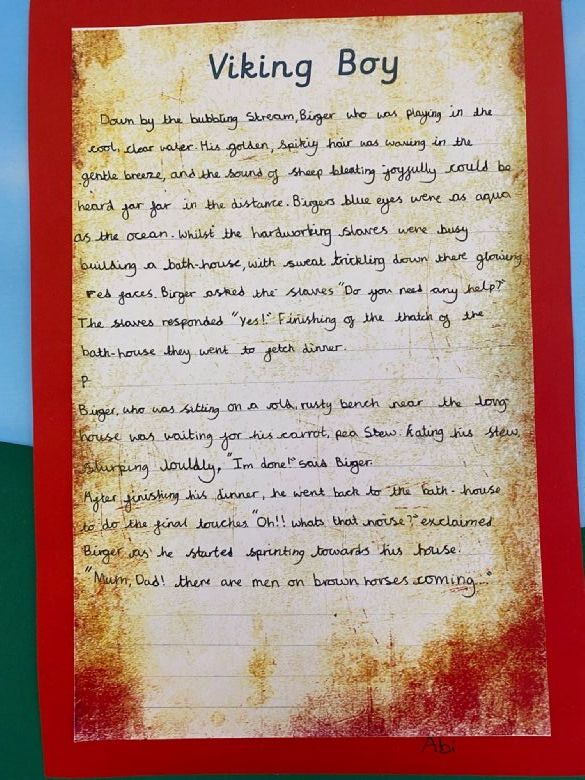 Viking Boy
Down by the bubbling Stream, Birger who was playing in the
cool, clear water. His golden, spikiy hair was waving in the
gentle breeze, and the sound of sheep bleating joyfully could be
heard far far in the distance. Birgers blue eyes were as aqua
as the ocean. Whilst the hardworking slaves were busy
building a bath-house, with sweat trickling down there glowing
red faces. Birger asked the slaves "Do you need any help?"
The slaves responded "Yes!" Finishing of the thatch of the
bath-house they went to fetch dinner.
P
Birger, who was sitting on a old, rusty bench near the long
house was waiting for his carrot, pea Stew. Eating his stew,
slurping louldly, "I'm done!" said Birger.
After finishing his dinner, he went back to the bath-house
to do the final touches "Oh!! whats that noise?" exclaimed
Birger as he started sprinting towards his house.
"Mum, Dad! there are men on brown horses coming..."
Abi